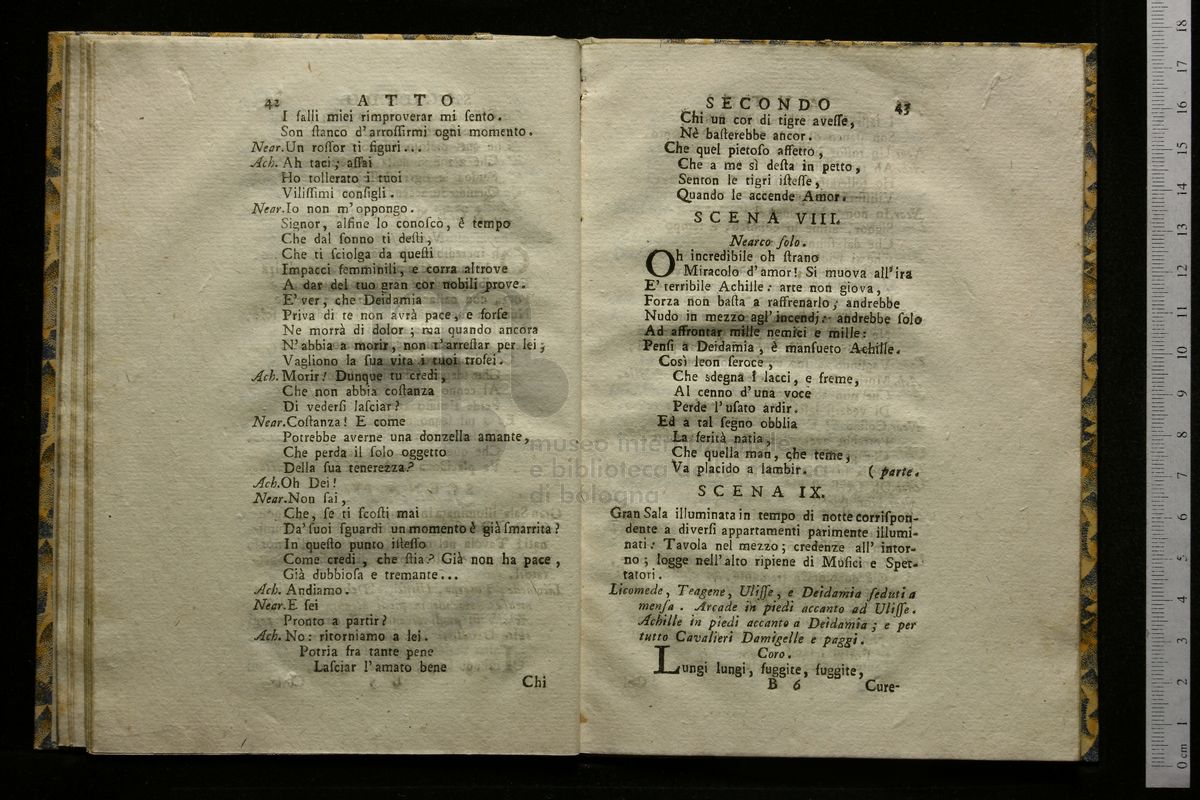 42 ATTO
I falli miei rimproverar mi ſento.
Son ſtanco d'arroſſirmi ogni momento.
Near. Un roſſor ti figuri...
Ach. Ah taci; aſſai
Ho tollerato i tuoi
Viliſſimi conſigli.
Near. Io non m'oppongo.
Signor, alfine lo conoſco, è tempo
Che dal ſonno ti deſti,
Che ti ſciolga da queſti
Impacci femminili, e corra altrove
A dar del tuo gran cor nobili prove.
E' ver, che Deidamia
Priva di te non avrà pace, e forſe
Ne morrà di dolor; ma quando ancora
N'abbia a morir, non t'arreſtar per lei;
Vagliono la ſua vita i tuoi trofei.
Ach. Morir! Dunque tu credi,
Che non abbia coſtanza
Di vederſi laſciar?
Near. Coſtanza! E come
Potrebbe averne una donzella amante,
Che perda il ſolo oggetto
Della ſua tenerezza?
Ach. Oh Dei!
Near. Non ſai,
Che, ſe ti ſcoſti mai
Da' ſuoi ſguardi un momento è già ſmarrita?
In queſto punto iſteſſo
Come credi, che ſtia? Già non ha pace,
Già dubbioſa e tremante...
Ach. Andiamo.
Near. E ſei
Pronto a partir?
Ach. No: ritorniamo a lei.
Potria fra tante pene
Laſciar l'amato bene
Chi
SECONDO 43
Chi un cor di tigre aveſſe,
Nè baſterebbe ancor.
Che quel pietoſo affetto,
Che a me sì deſta in petto,
Senton le tigri iſteſſe,
Quando le accende Amor.
SCENA VIII.
Nearco ſolo.
Oh incredibile oh ſtrano
Miracolo d'amor! Si muova all'ira
E' terribile Achille: arte non giova,
Forza non baſta a raffrenarlo; andrebbe
Nudo in mezzo agl'incendj: andrebbe ſolo
Ad affrontar mille nemici e mille:
Penſi a Deidamia, è manſueto Achille.
Così leon feroce,
Che sdegna i lacci, e freme,
Al cenno d'una voce
Perde l'uſato ardir.
Ed a tal ſegno obblia
La ferità natia,
Che quella man, che teme,
Va placido a lambir. ( parte.
SCENA IX.
Gran Sala illuminata in tempo di notte corriſpon-
dente a diverſi appartamenti parimente illumi-
nati: Tavola nel mezzo; credenze all' intor-
no; logge nell'alto ripiene di Muſici e Spet-
tatori.
Licomede, Teagene, Uliſſe, e Deidamia ſeduti a
menſa. Arcade in piedi accanto ad Uliſſe.
Achille in piedi accanto a Deidamia; e per
tutto Cavalieri Damigelle e paggi.
Coro.
Lungi lungi, fuggite, fuggite,
B 6 Cure-
museo internazionale
e biblioteca della musica
di bologna
0 cm 1 2 3 4 5 6 7 8 9 10 11 12 13 14 15 16 17 18